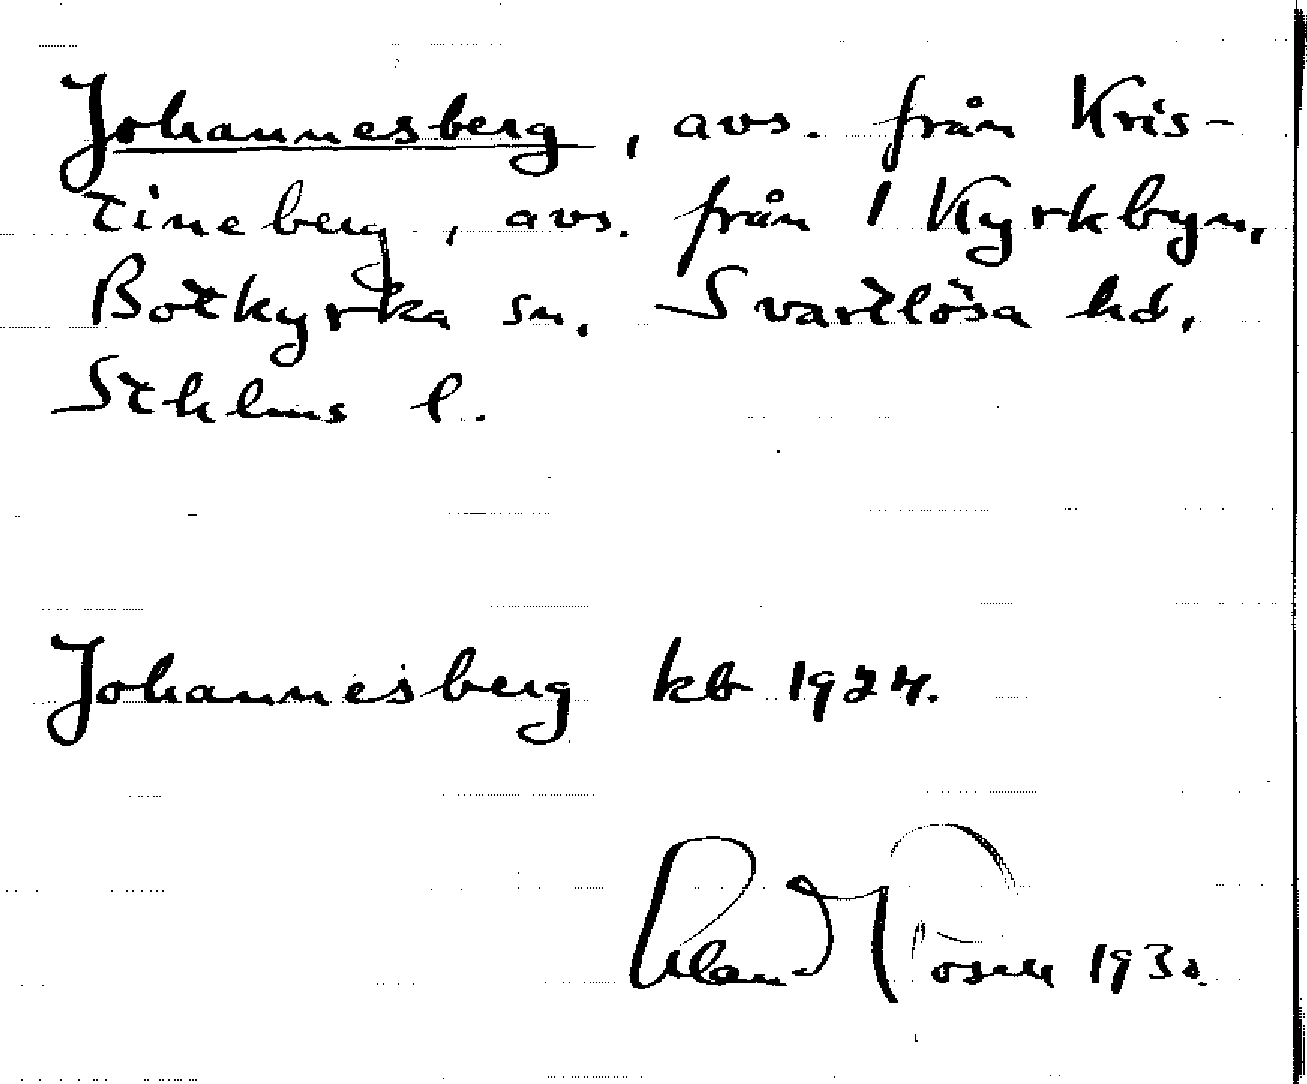 Johannesberg, avs. från Kris-
tineberg, avs. från 1 Kyrkbyn,
Botkyrka sn. Svartlösa hd,
Sthlms l.
Johannesberg kb 1924.
1930.